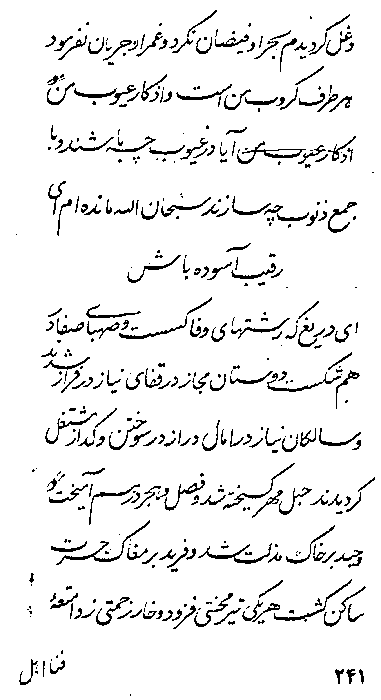 و غل کردیدم بجز او فیضان نکرد و غمر او جریان نفرمود
هر طرف کروب من است و اذکار عیوب من
اذکار عیوب من آیا در غیوب چه باشند و با
جمع ذنوب چه سازند سبحان الله مانده ام ای
رقیب آسوده باش
ای دریغ که رشتهای وفا کسست و صهبای صفا در
هم شکست دوستان مجاز در قفای نیاز در فراز شدید
و سالکان نیاز در امال دراز در سوختن و کداز مشتغل
کردیدند حبل مهر کسیخته شد و فصل و هجر در هم آمیخت
وحید بر خاک مذلت شد و فرید بر مغاک حسرت
ساکن کشت هر یکی تیر محنتی فزود و خار زحمتی زد امتعهٔ
۲۴۱